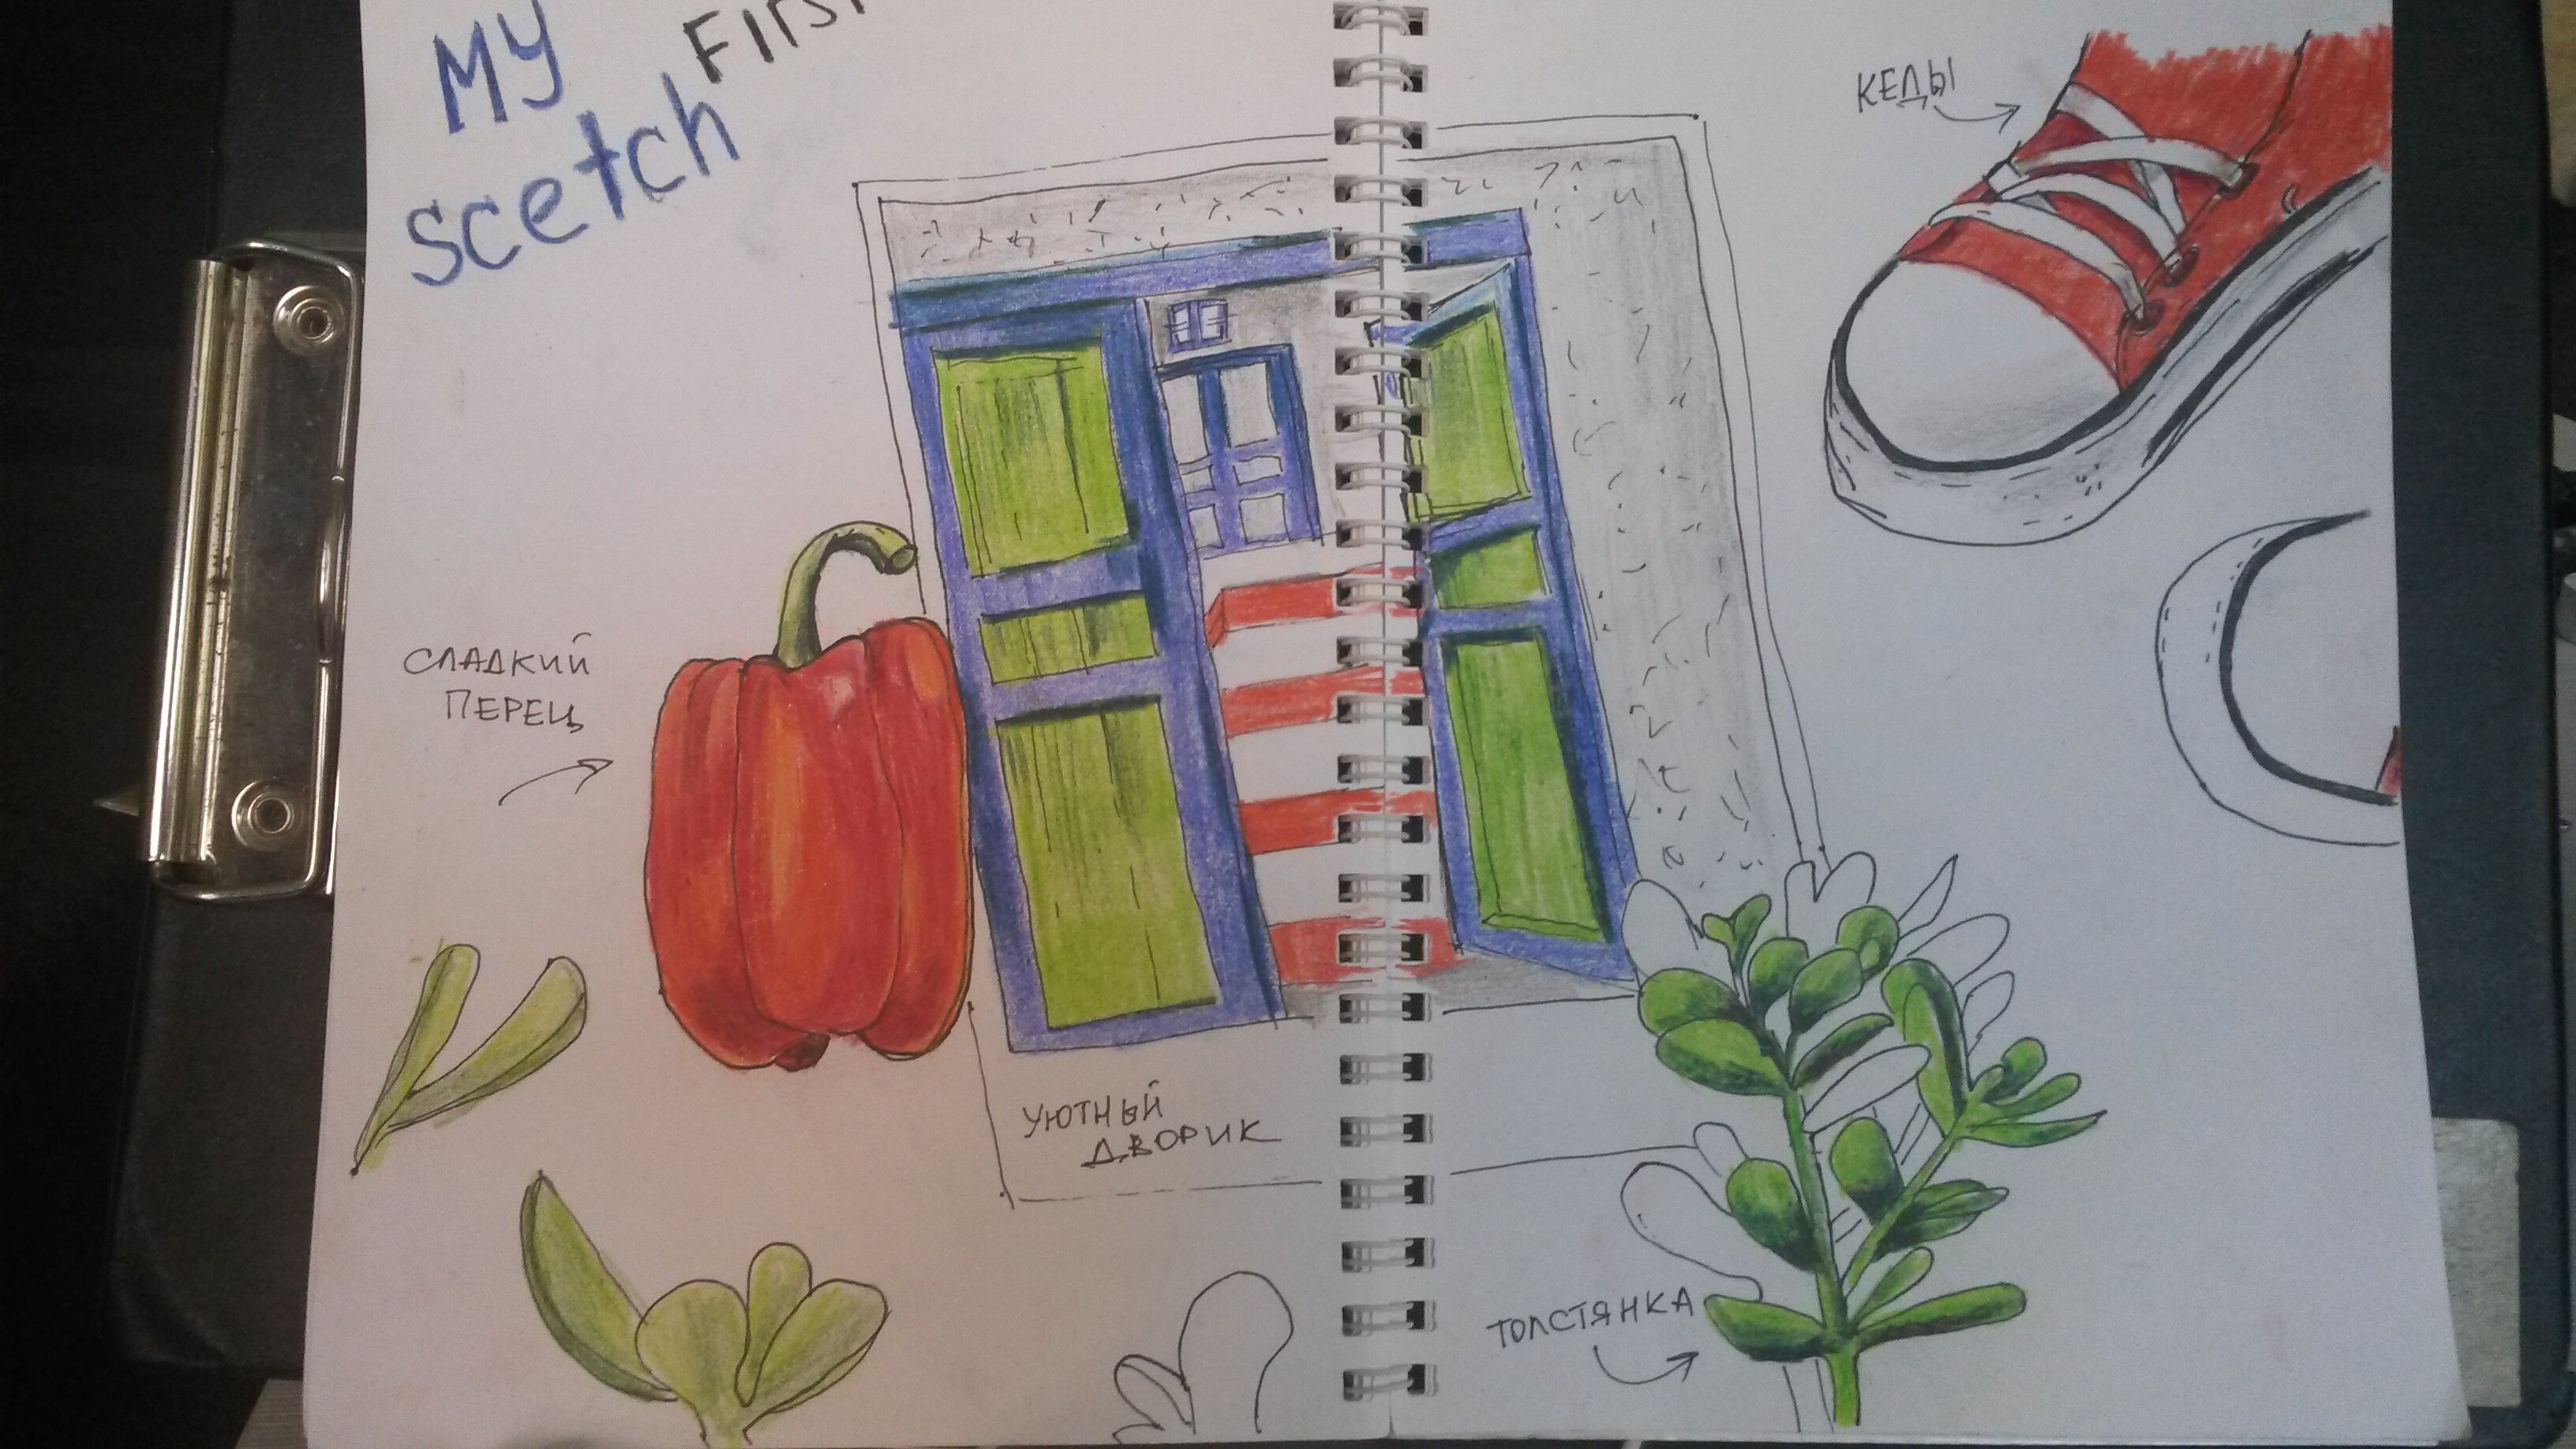 My
First
scetch
КЕДЫ
СЛАДКИЙ
ПЕРЕЦ
УЮТНЫЙ
ДВОРИК
ТОЛСТЯНКА